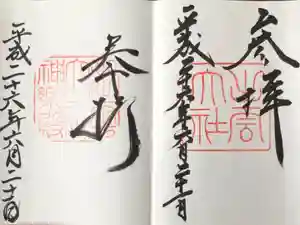 参拝
出雲大社
平成二十六年六月二十一日
奉拝
平成二十六年六月二十一日